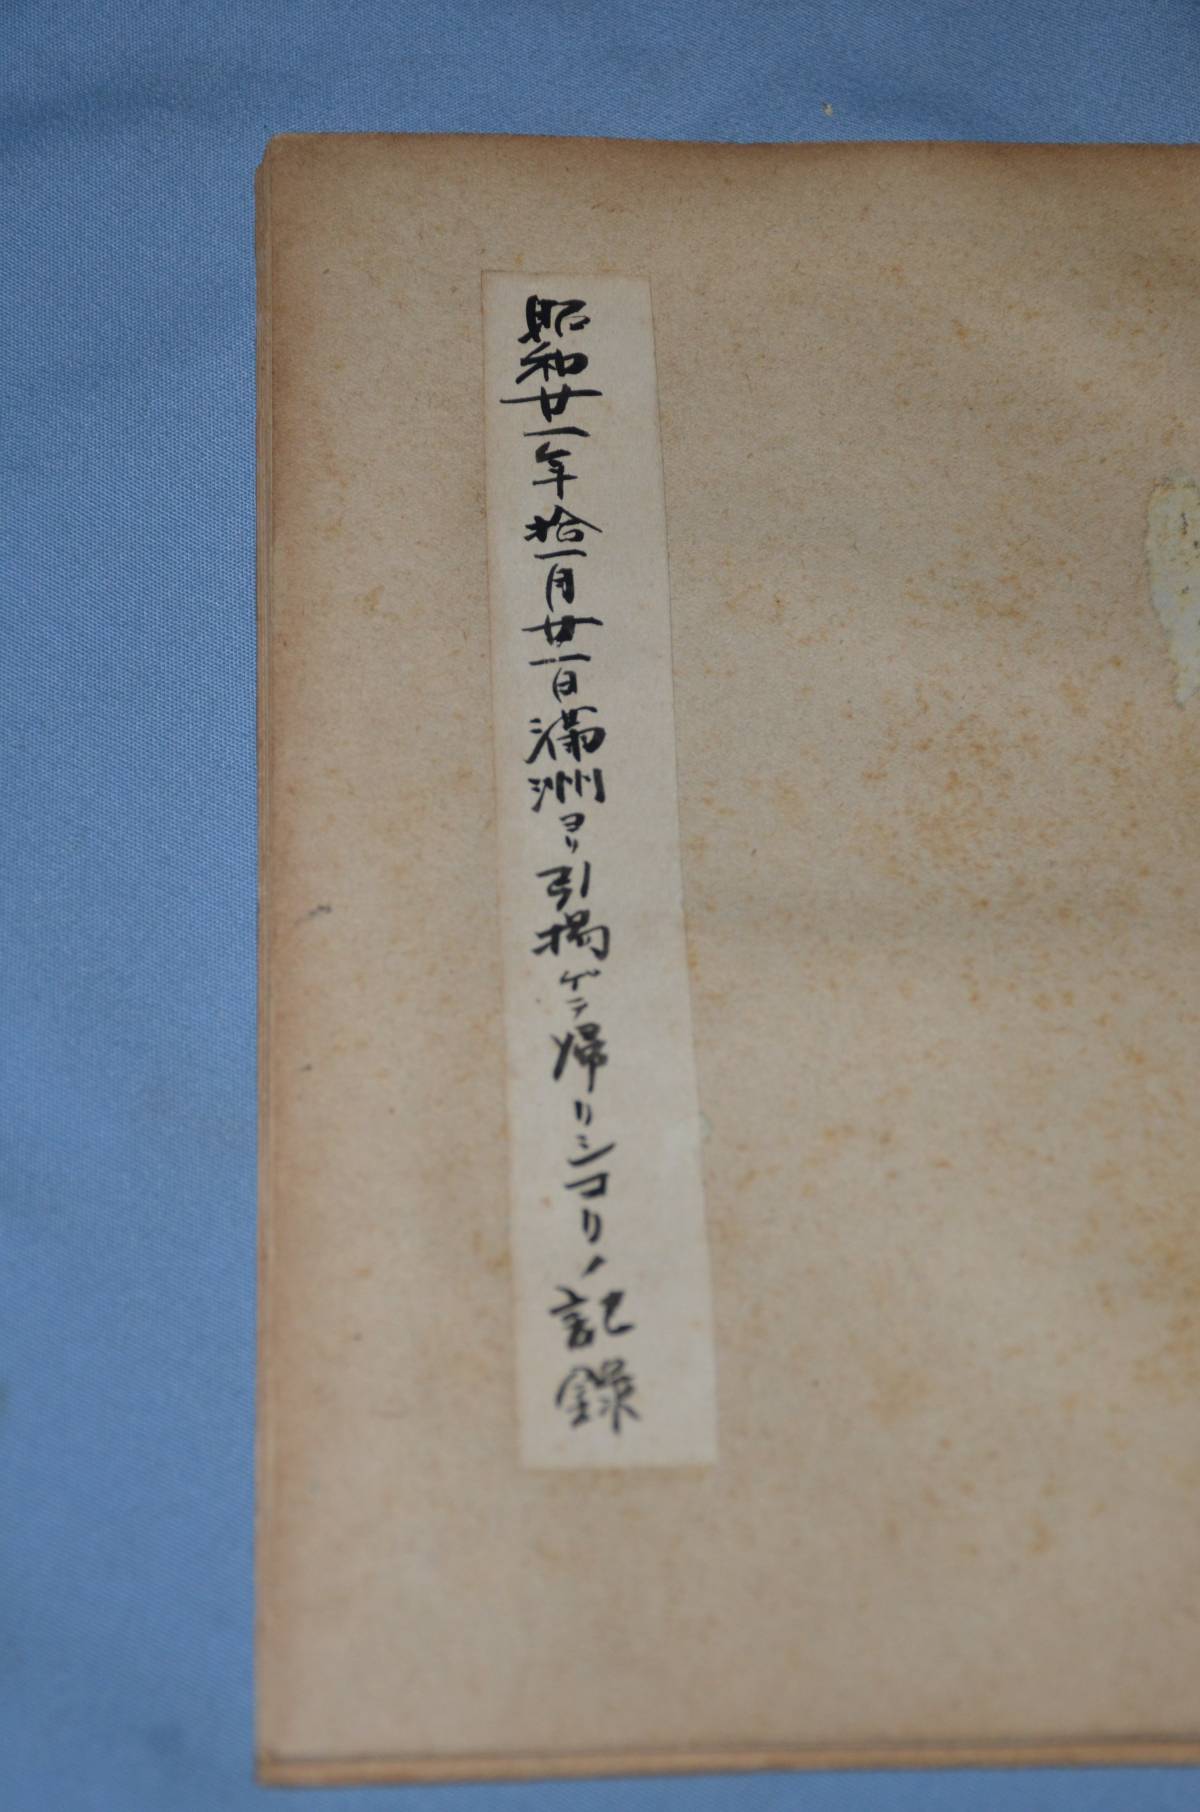 昭和廿一年拾一月廿一日満洲ヨリ引揚ゲテ帰リシコリノ記録